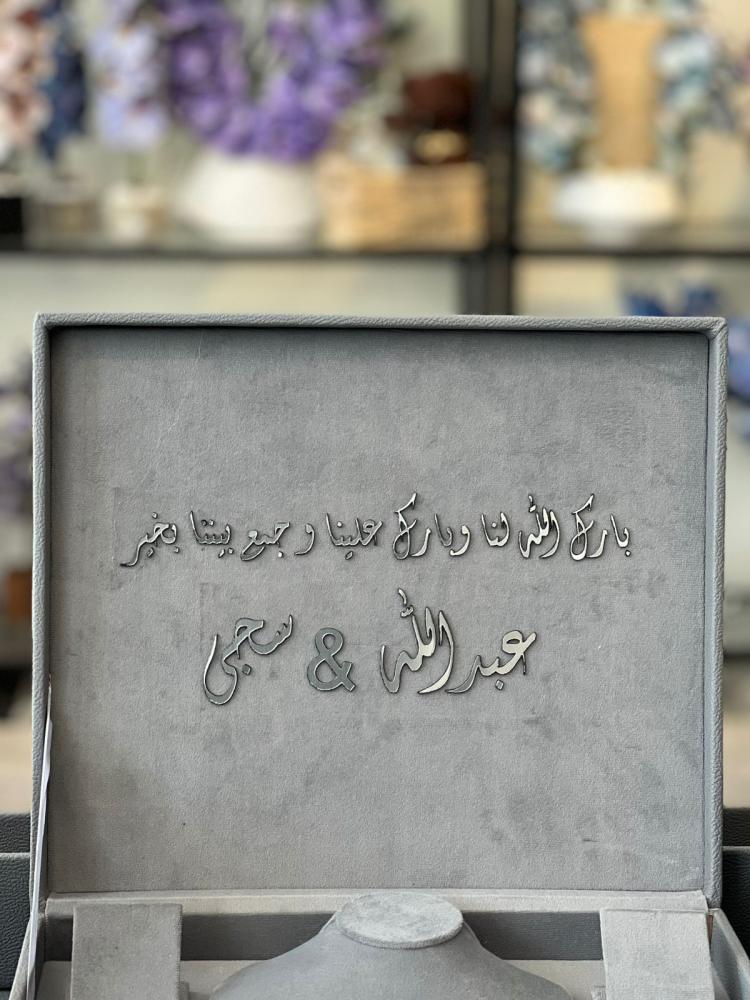 بارك الله لنا وبارك علينا و جمع بيننا بخير
عبدالله & سجى